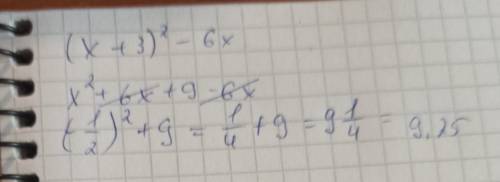 (x + 3)² − 6x
x² + 6x + 9 − 6x
(1/2)² + 9 = 1/4 + 9 = 9 1/4 = 9.25